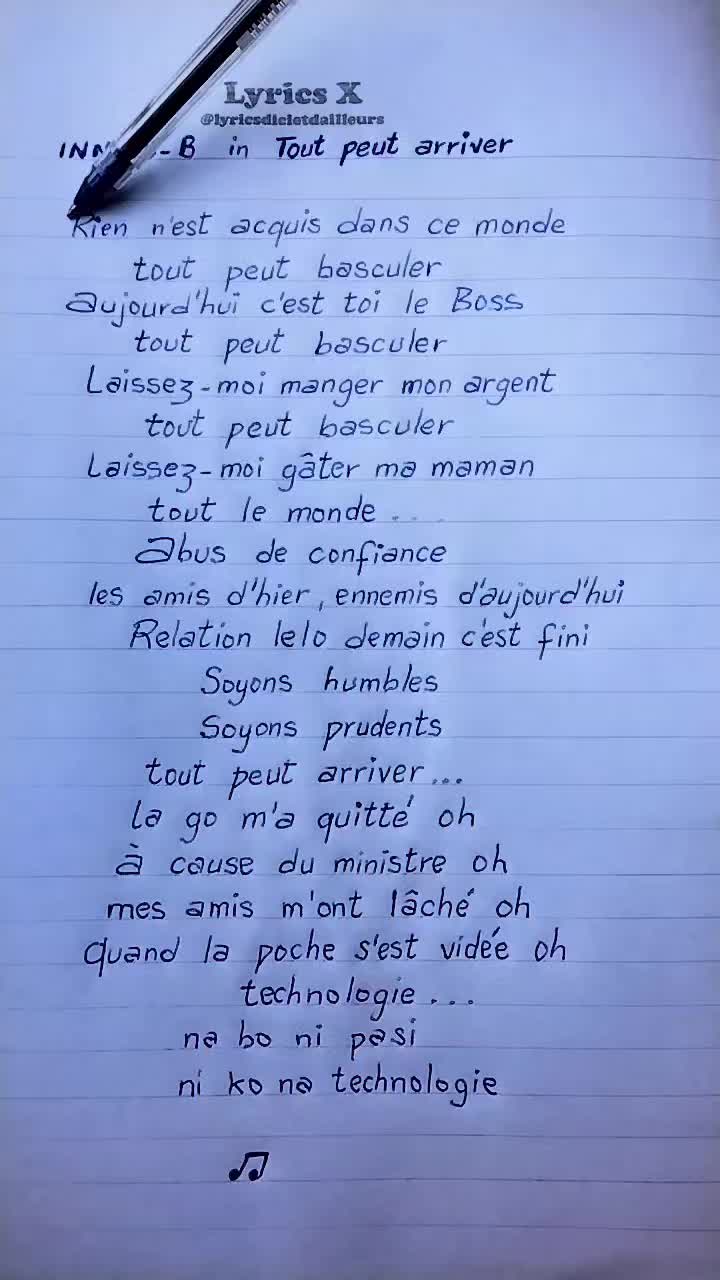 Lyrics X
@lyricsdicietdailleurs
-B in Tout peut arriver
Rien n'est acquis dans ce monde
tout peut basculer
aujourd'hui c'est toi le Boss
tout peut basculer
Laissez-moi manger mon argent
tout peut basculer
Laissez-moi gâter ma maman
tout le monde ....
Abus de confiance
les amis d'hier, ennemis d'aujourd'hui
Relation lelo demain c'est fini
Soyons humbles
Soyons prudents
tout peut arriver...
la go m'a quitté oh
à cause du ministre oh
mes amis m'ont lâché oh
quand la poche s'est vidée oh
technologie...
na bo ni pasi
ni ko na technologie